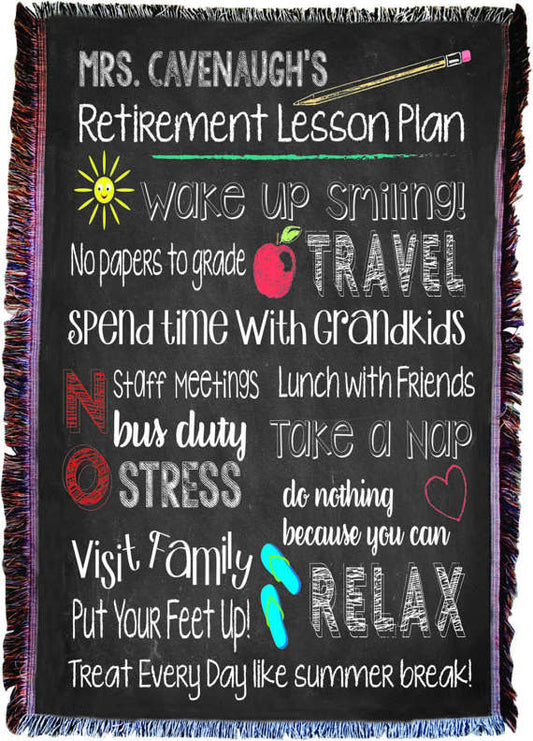 MRS. CAVENAUGH'S
Retirement Lesson Plan
Wake up smiling!
No papers to grade
TRAVEL
Spend time with Grandkids
NO
Staff Meetings
bus duty
STRESS
Lunch with Friends
Take a Nap
do nothing
because you can
Visit Family
Put Your Feet Up!
RELAX
Treat Every Day like summer break!